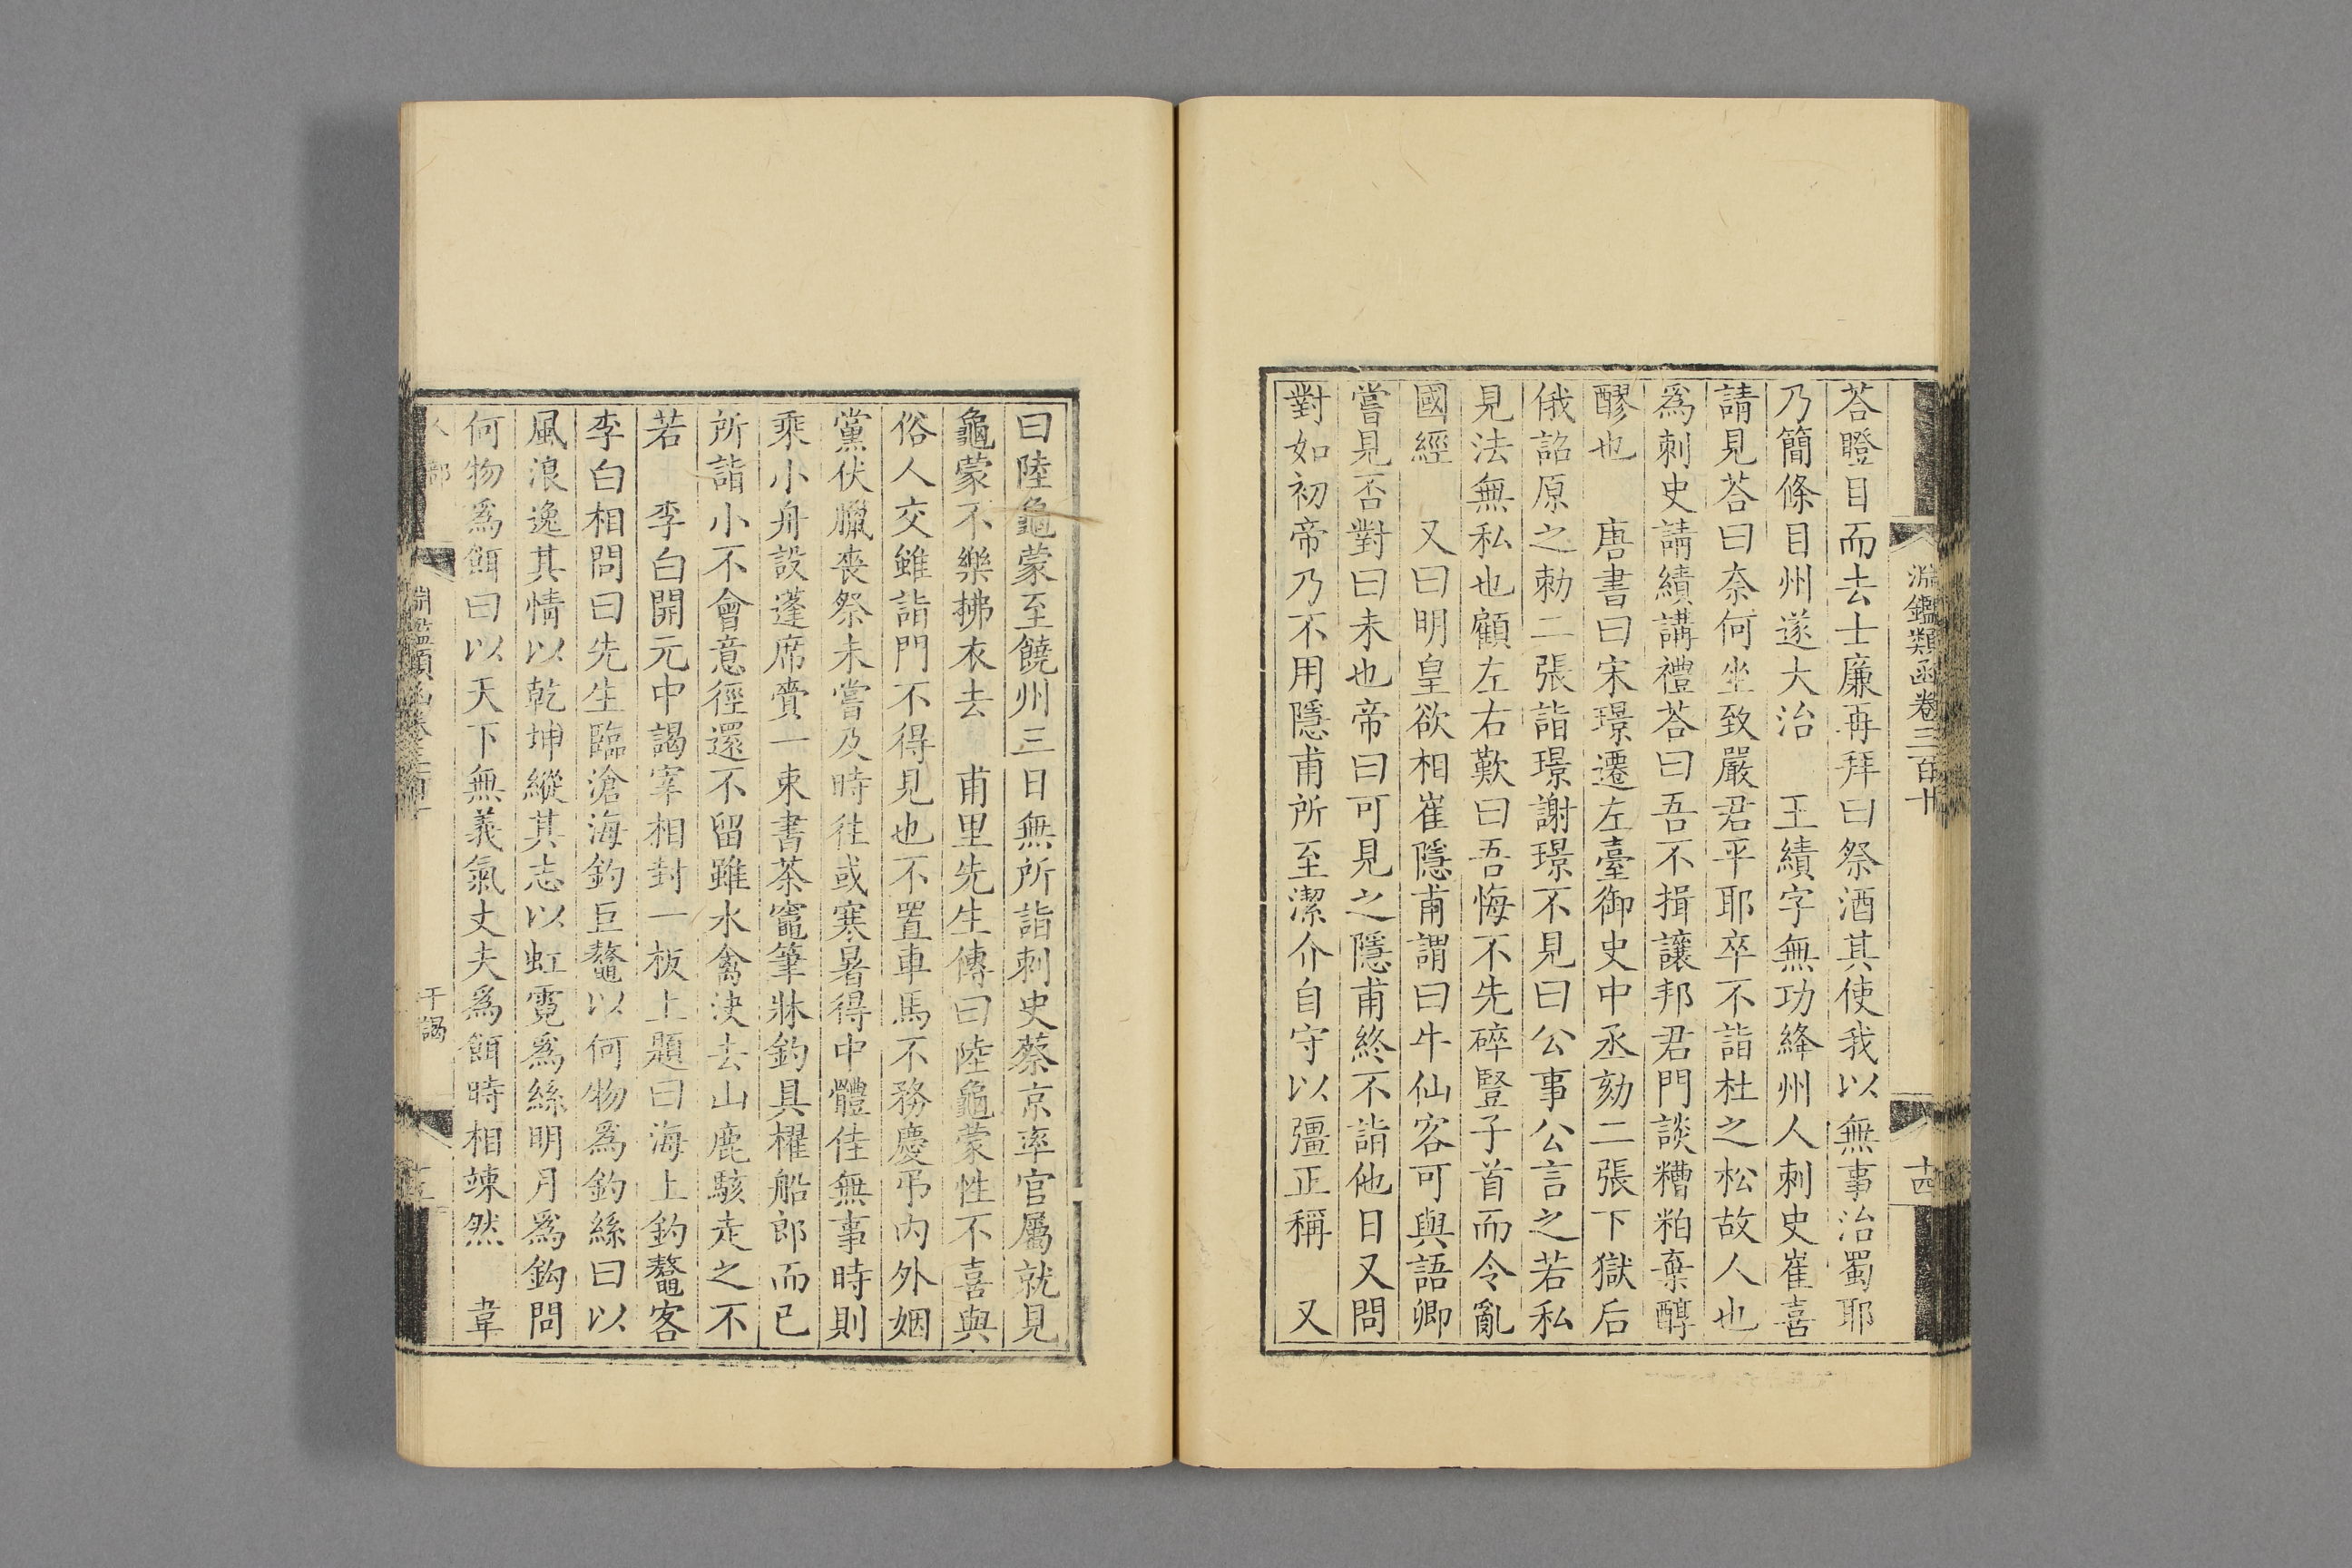 淵鑑類函卷三百十
古
荅瞪目而去士廉再拜曰祭酒其使我以無事治蜀耶
乃簡條目州遂大治　王績字無功絳州人刺史崔喜
請見荅曰奈何坐致嚴君平耶卒不詣杜之松故人也
爲刺史請績講禮荅曰吾不揖讓邦君門談糟粕棄醇
醪也　唐書曰宋璟遷左臺御史中丞劾二張下獄后
俄詔原之勑二張詣璟謝璟不見曰公事公言之若私
見法無私也顧左右歎曰吾悔不先碎豎子首而令亂
國經　又曰明皇欲相崔隱甫謂曰牛仙客可與語卿
嘗見否對曰未也帝曰可見之隱甫終不詣他日又問
對如初帝乃不用隱甫所至潔介自守以彊正稱　又
曰陸龜蒙至饒州三日無所詣刺史蔡京率官屬就見
龜蒙不樂拂衣去　甫里先生傳曰陸龜蒙性不喜與
俗人交雖詣門不得見也不置車馬不務慶弔内外姻
黨伏臘喪祭未嘗及時往或寒暑得中體佳無事時則
乘小舟設蓬席賷一束書茶竈筆牀釣具櫂船郎而已
所詣小不會意徑還不留雖水禽决去山鹿駭走之不
若　李白開元中謁宰相封一板上題曰海上釣鼇客
李白相問曰先生臨滄海釣巨鼇以何物爲釣絲曰以
風浪逸其情以乾坤縱其志以虹霓爲絲明月爲鈎問
何物爲餌曰以天下無義氣丈夫爲餌時相竦然　韋
人部
淵鑑類函卷
干謁